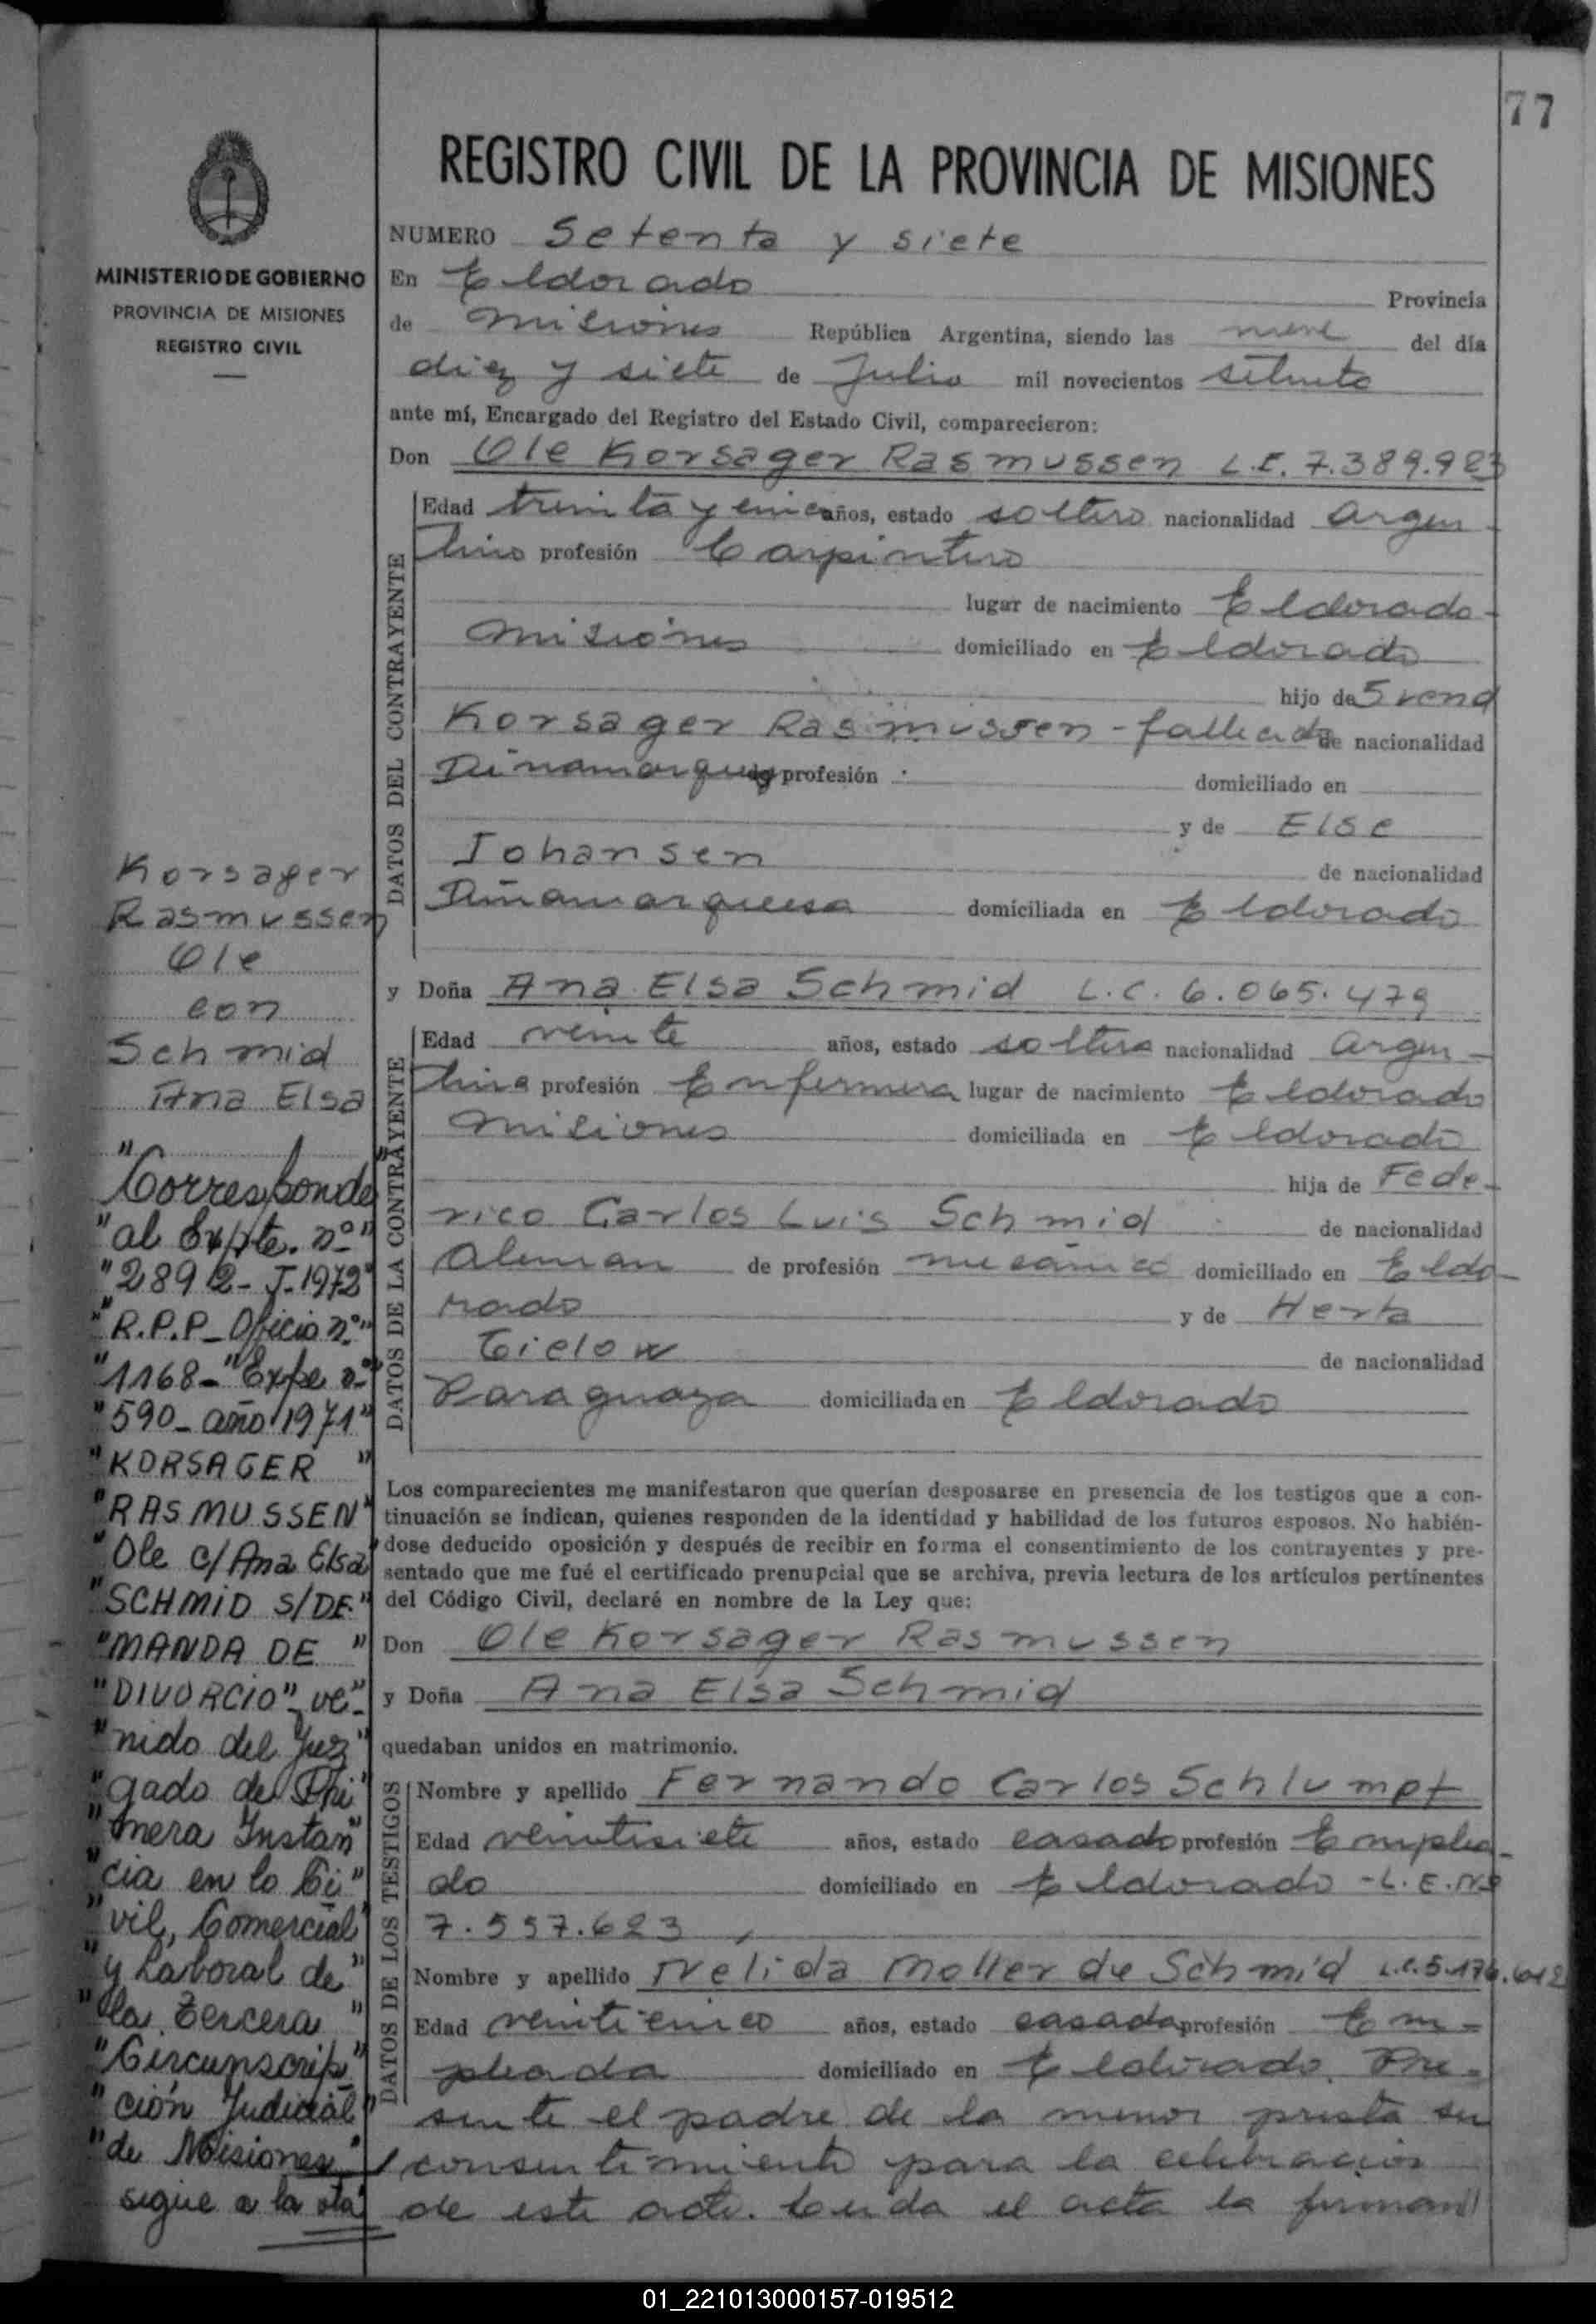 77
REGISTRO CIVIL DE LA PROVINCIA DE MISIONES
MINISTERIO DE GOBIERNO
PROVINCIA DE MISIONES
REGISTRO CIVIL
NUMERO Setenta y siete
En Eldorado Provincia
de Misiones República Argentina, siendo las nueve del día
diez y siete de Julio mil novecientos setenta
ante mí, Encargado del Registro del Estado Civil, comparecieron:
Don Ole Korsager Rasmussen L.E. 7.389.923
DATOS DEL CONTRAYENTE
Edad treinta y cinco años, estado soltero nacionalidad argen-
tino profesión Carpintero
lugar de nacimiento Eldorado-
Misiones domiciliado en Eldorado
hijo de Svend
Korsager Rasmussen - fallecido de nacionalidad
Dinamarques profesión domiciliado en
y de Else
Johansen de nacionalidad
Dinamarquesa domiciliada en Eldorado
y Doña Ana Elsa Schmid L.C. 6.065.479
DATOS DE LA CONTRAYENTE
Edad veinte años, estado soltera nacionalidad argen-
tina profesión Enfermera lugar de nacimiento Eldorado
Misiones domiciliada en Eldorado
hija de Fede-
rico Carlos Luis Schmid de nacionalidad
Aleman de profesión mecánico domiciliado en Eldo-
rado y de Herta
Cielow de nacionalidad
Paraguaya domiciliada en Eldorado
Los comparecientes me manifestaron que querían desposarse en presencia de los testigos que a con-
tinuación se indican, quienes responden de la identidad y habilidad de los futuros esposos. No habién-
dose deducido oposición y después de recibir en forma el consentimiento de los contrayentes y pre-
sentado que me fué el certificado prenupcial que se archiva, previa lectura de los artículos pertinentes
del Código Civil, declaré en nombre de la Ley que:
Don Ole Korsager Rasmussen
y Doña Ana Elsa Schmid
quedaban unidos en matrimonio.
DATOS DE LOS TESTIGOS
Nombre y apellido Fernando Carlos Schlumpf
Edad veintisiete años, estado casado profesión Emplea-
do domiciliado en Eldorado - L.E. Nº
7.557.623
Nombre y apellido Nelida Moller de Schmid L.C. 5.174.612
Edad veinticinco años, estado casada profesión Em-
pleada domiciliado en Eldorado. Pre-
sente el padre de la menor presta su
consentimiento para la celebración
de este acto. Leida el acta la firman
Korsager
Rasmussen
Ole
con
Schmid
Ana Elsa
"Corresponde"
"al Expte. nº"
"2892-J-1972"
"R.P.P_Oficio nº"
"1168-"Expe nº"
"590-año 1971"
"KORSAGER"
"RASMUSSEN"
"Ole c/Ana Elsa"
"SCHMID S/DE"
"MANDA DE"
"DIVORCIO"-ve-"
"nido del Juz"
"gado de Pri"
"mera Instan"
"cia en lo Ci"
"vil, Comercial"
"y Laboral de"
"la Tercera"
"Circunscrip"
"ción Judicial"
"de Misiones"
sigue a la vta
01_221013000157-019512